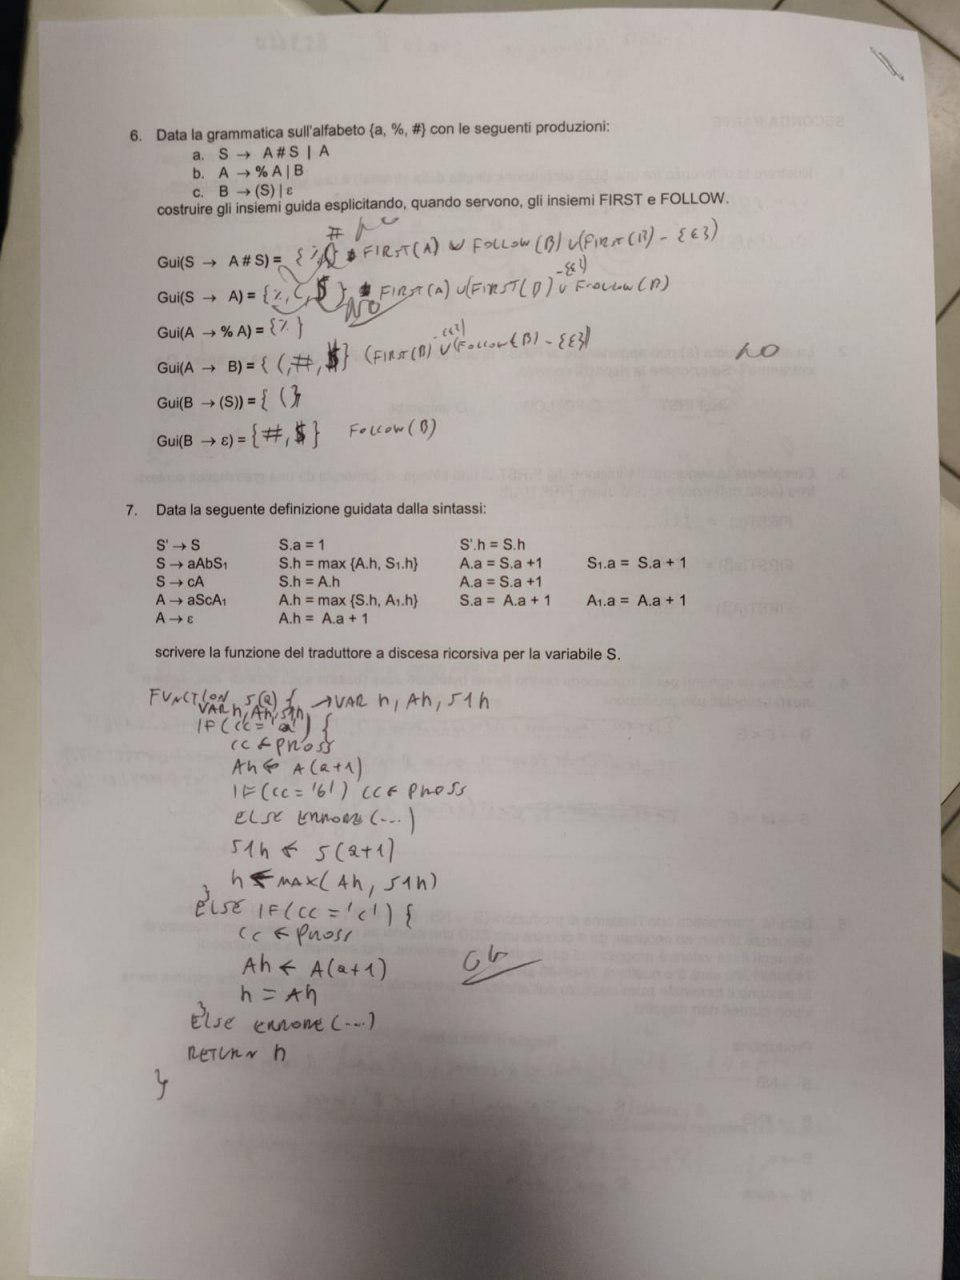 6. Data la grammatica sull'alfabeto {a, %, #} con le seguenti produzioni:
a. S → A # S | A
b. A → % A | B
c. B → (S) | ε
costruire gli insiemi guida esplicitando, quando servono, gli insiemi FIRST e FOLLOW.
# NO
Gui(S → A # S) = { %, ( } FIRST(A) ∪ FOLLOW(B) ∪ (FIRST(B) - {ε})
Gui(S → A) = { %, (, $ } FIRST(A) ∪ (FIRST(B) -{ε}) ∪ FOLLOW(B)
NO
Gui(A → % A) = { % }
Gui(A → B) = { (, #, $ } (FIRST(B) -{ε}) ∪ (FOLLOW(B) - {ε})
NO
Gui(B → (S)) = { ( }
Gui(B → ε) = { #, $ } FOLLOW(B)
7. Data la seguente definizione guidata dalla sintassi:
S' → S S.a = 1 S'.h = S.h
S → aAbS₁ S.h = max {A.h, S₁.h} A.a = S.a +1 S₁.a = S.a + 1
S → cA S.h = A.h A.a = S.a +1
A → aScA₁ A.h = max {S.h, A₁.h} S.a = A.a + 1 A₁.a = A.a + 1
A → ε A.h = A.a + 1
scrivere la funzione del traduttore a discesa ricorsiva per la variabile S.
FUNCTION S(a) { → VAR h, Ah, S1h
VAR h, Ah, S1h
IF (cc = 'a') {
cc ← PROSS
Ah ← A(a+1)
IF (cc = 'b') cc ← PROSS
ELSE ERRORE (...)
S1h ← S(a+1)
h ← MAX(Ah, S1h)
}
ELSE IF (cc = 'c') {
cc ← PROSS
Ah ← A(a+1)
h = Ah
}
ELSE ERRORE (...)
RETURN h
}
Ok